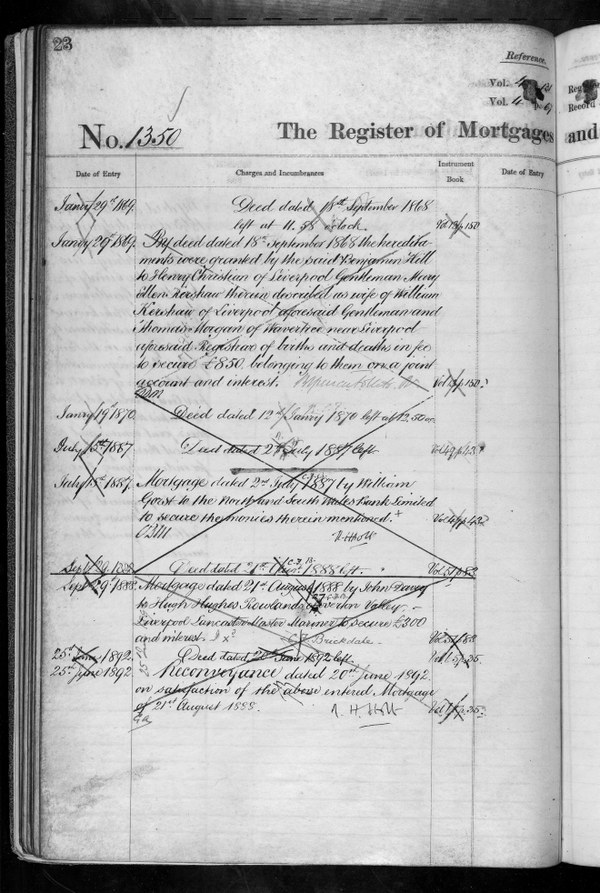 23
Reference.
Vol. 4
Vol. 4 p. 69
Reg
Record
No. 1350
The Register of Mortgages
and
Date of Entry
Charges and Incumbrances
Instrument Book
Date of Entry
Janry 29th 1869.
Deed dated 18th September 1868
left at 11.58 o'clock
Vol 13 p 150
Janry 29th 1869.
By deed dated 18th September 1868 the heredita-
ments were granted by the said Benjamin Hill
to Henry Christian of Liverpool Gentleman Mary
Ellen Kershaw therein described as wife of William
Kershaw of Liverpool aforesaid Gentleman and
Thomas Morgan of Wavertree near Liverpool
aforesaid Registrar of births and deaths in fee
to secure £850 belonging to them on a joint
account and interest.
Vol 13 p 150
Janry 19th 1870.
Deed dated 12th Janry 1870 left at 12.50
July 15th 1887
Deed dated 2nd July 1887 left
Vol 49 p 43
July 15th 1887.
Mortgage dated 2nd July 1887 by William
Gorst to the North and South Wales Bank Limited
to secure the monies therein mentioned. +
Vol 49 p 43
R H Holt
Sept 29 1888
Deed dated 21st Augt 1888 left
Vol 51 p 83
Sept 29 1888.
Mortgage dated 21st August 1888 by John Davey
to Hugh Hughes Rowlands Everton Valley
Liverpool Lancaster Master Mariner to secure £300
and interest.
C F Brickdale
Vol 51 p 83
25th June 1892.
Deed dated 20th June 1892 left
25th June 1892
Reconveyance dated 20th June 1892
on satisfaction of the above entered Mortgage
of 21st August 1888.
R. H. Holt